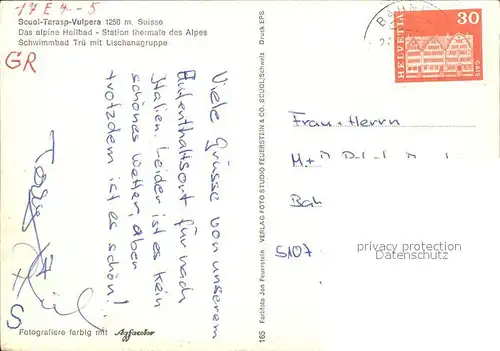 17 E 4-5
GR
Scuol-Tarasp-Vulpera 1250 m. Suisse
Das alpine Heilbad - Station thermale des Alpes
Schwimmbad Trü mit Lischanagruppe
Viele Grüsse von unserem
Aufenthaltsort für nach
Italien. Leider ist es kein
schönes Wetter, aber
trotzdem ist es schön!
Fotografiere farbig mit Agfacolor
165 Farbfoto Jon Feuerstein VERLAG FOTO STUDIO FEUERSTEIN & CO. SCUOL/Schweiz Druck EPS
HELVETIA 30
GAIS
Frau + Herrn
Bah
5107
privacy protection
Datenschutz